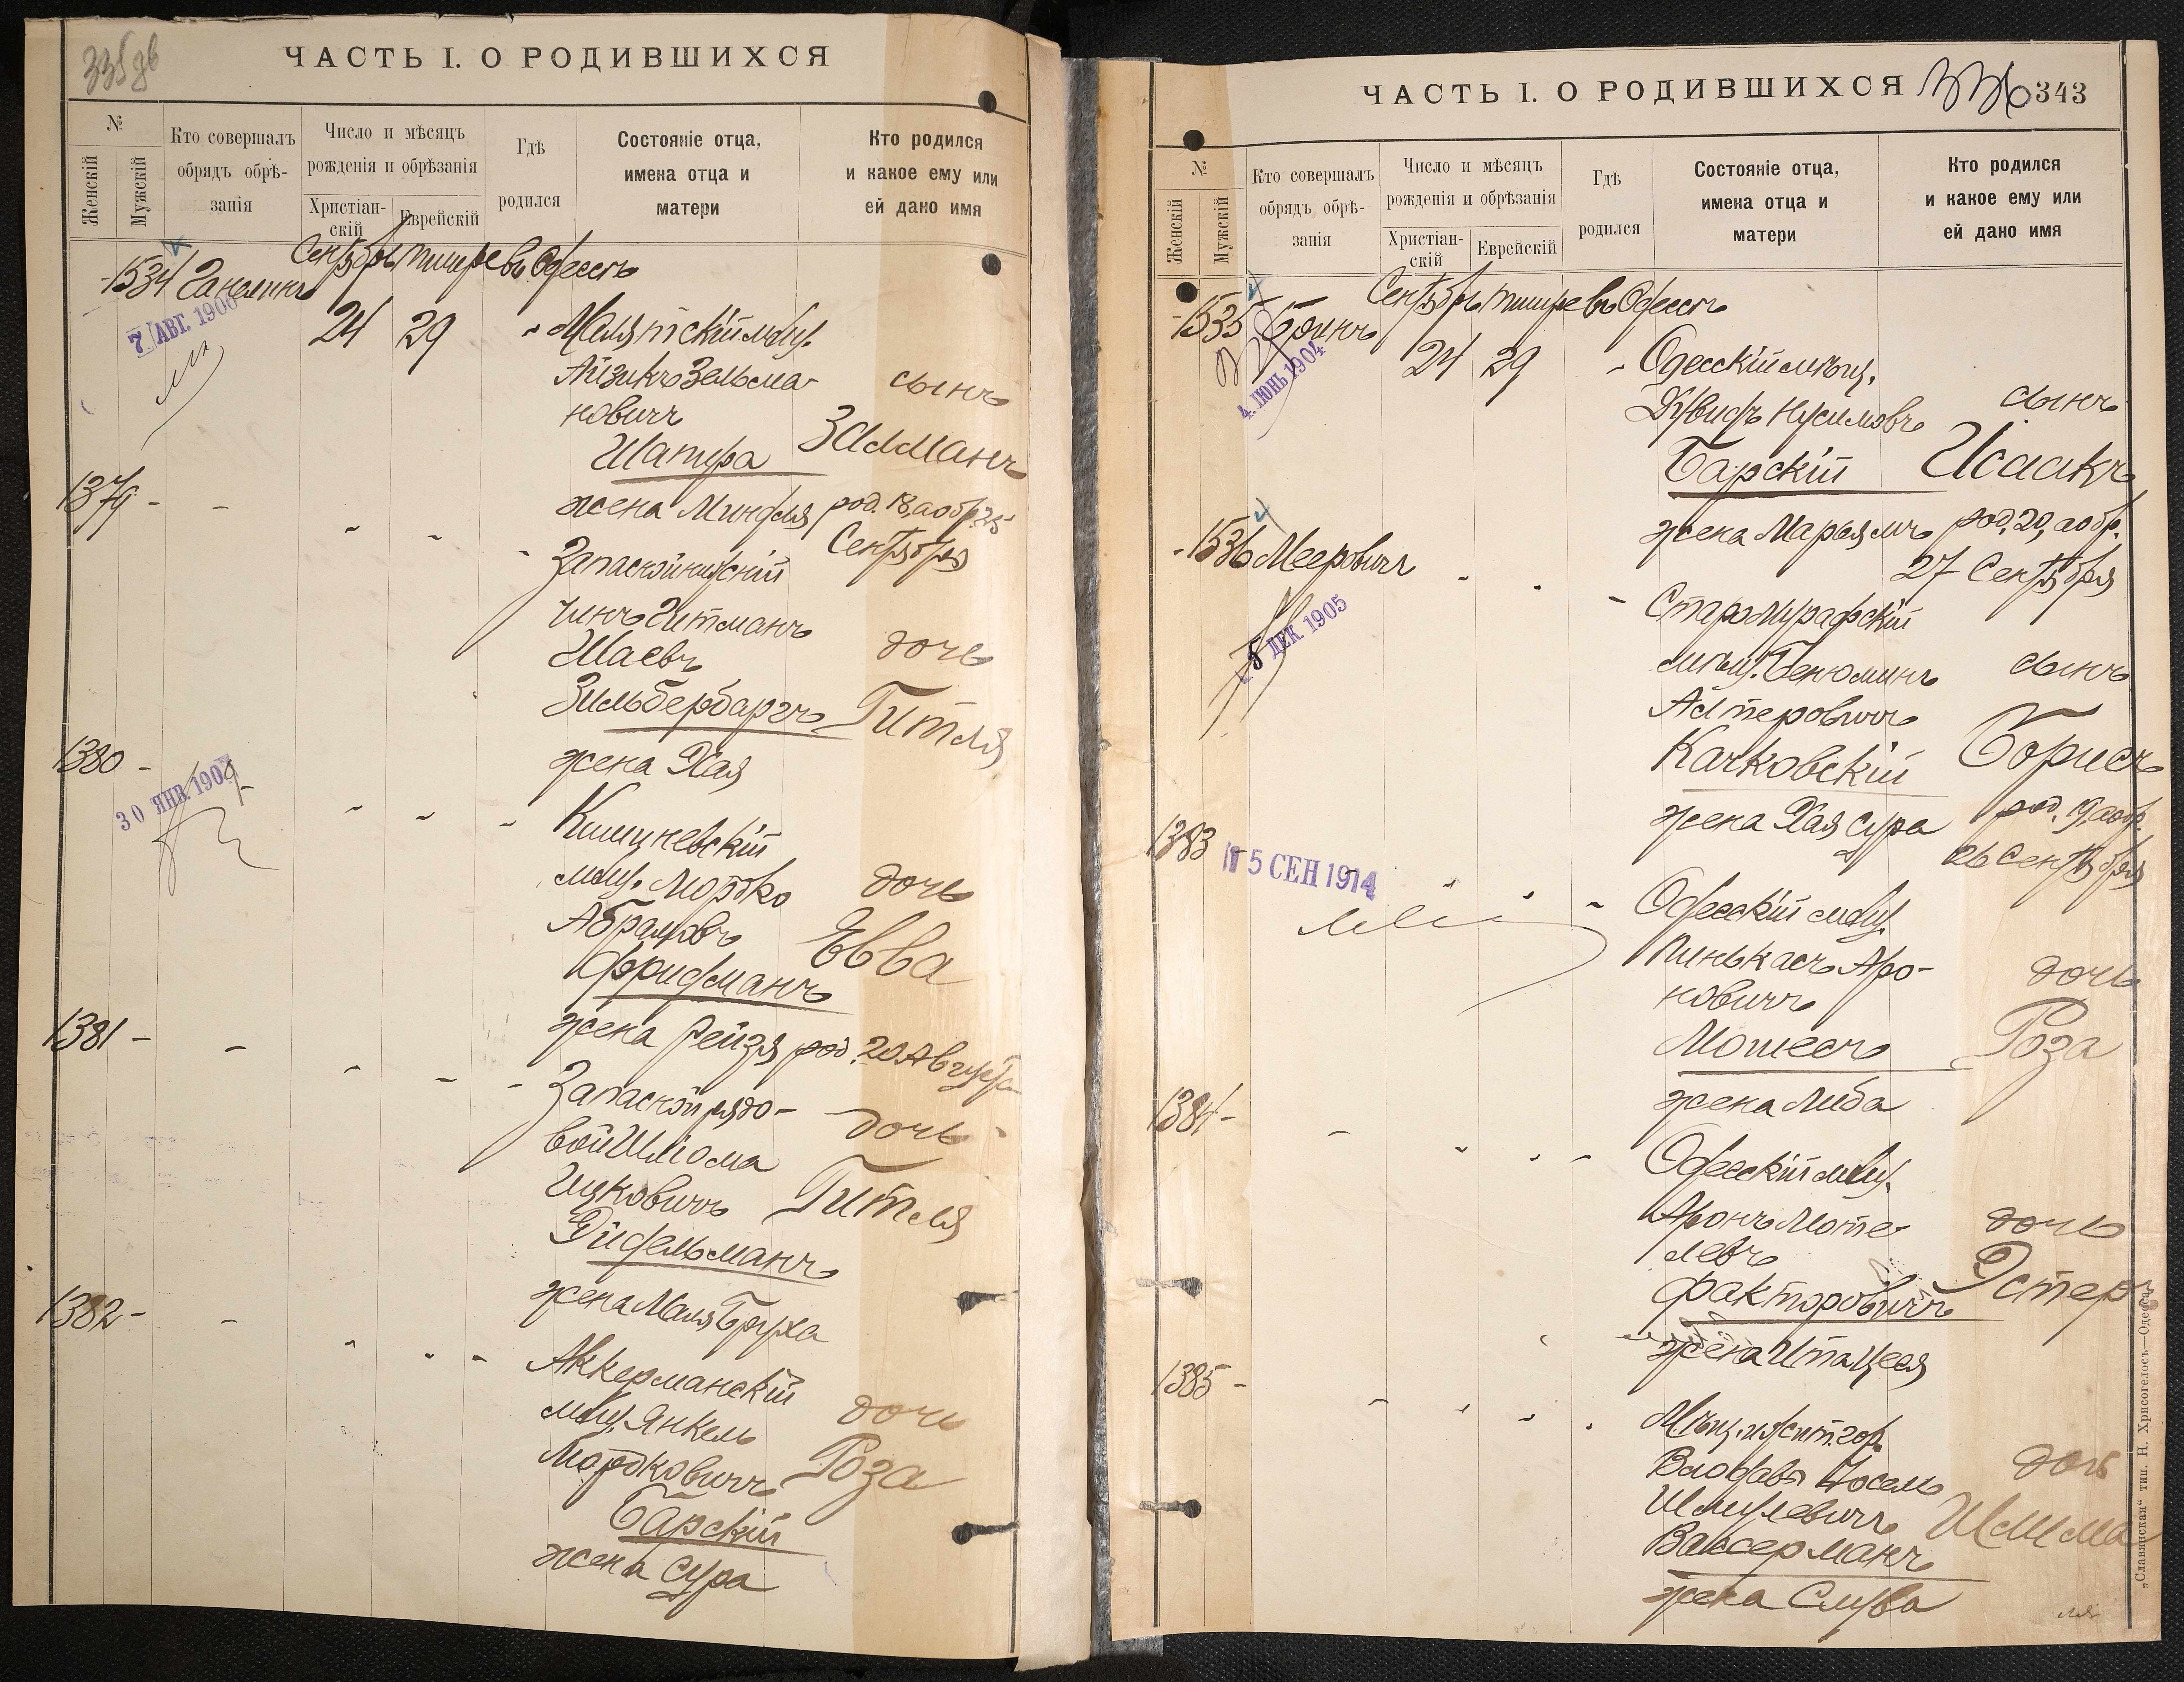 335 об
ЧАСТЬ I. О РОДИВШИХСЯ
№
Женскій
Мужскій
Кто совершалъ
обрядъ обрѣ-
занія
Число и мѣсяцъ
рожденія и обрѣзанія
Христіан-
скій
Еврейскій
Гдѣ
родился
Состояніе отца,
имена отца и
матери
Кто родился
и какое ему или
ей дано имя
Сентябрь тишре въ Одессѣ
1534
7 АВГ. 1900
24 29
мѣщ.
Айзикъ Зельма-
новичъ
Шапира
жена Миндля
сынъ
Залманъ
род. 18, а обр. 25
Сентября
1379 -
Запасной нижній
чинъ Гитманъ
Шаевъ
Зильбербаргъ
жена Хая
дочь
Гитля
1380 -
30 ЯНВ. 190
Кишиневскій
мѣщ. Мордко
Абрамовъ
Фридманъ
жена Рейзя
дочь
Евва
род. 20 Августа
1381 -
Запасной рядо-
вой Шлiома
Ицковичъ
Фидельманъ
жена Маля Бруха
дочь
Гитля
1382 -
Аккерманскій
мѣщ. Янкель
Мордковичъ
Барскій
жена Сура
дочь
Роза
ЧАСТЬ I. О РОДИВШИХСЯ
336 343
№
Женскій
Мужскій
Кто совершалъ
обрядъ обрѣ-
занія
Число и мѣсяцъ
рожденія и обрѣзанія
Христіан-
скій
Еврейскій
Гдѣ
родился
Состояніе отца,
имена отца и
матери
Кто родился
и какое ему или
ей дано имя
Сентябрь тишре въ Одессѣ
1535
4 ІЮНЬ 1904
24 29
Одесскій мѣщ.
Дувидъ Нусимовъ
Барскій
жена Марьямъ
сынъ
Исаакъ
род. 20, а обр.
27 Сентября
1536 Мееровичъ
5 ДЕК 1905
Старомурафскій
мѣщ. Бенюминъ
Алтеровичъ
Качковскій
жена Хая Сура
сынъ
Борисъ
род. 19, а обр.
26 Сентября
1383 -
15 СЕН 1914
Одесскій мѣщ.
Пинькасъ Аро-
новичъ
Мошесъ
жена Либа
дочь
Роза
1384 -
Одесскій мѣщ.
Аронъ Моте-
левъ
Факторовичъ
жена Ита Цеся
дочь
Эстер
1385 -
Іосель
Шмулевичъ
Вассерманъ
жена Слува
дочь
„Славянская“ тип. Н. Хрисогелосъ—Одесса.